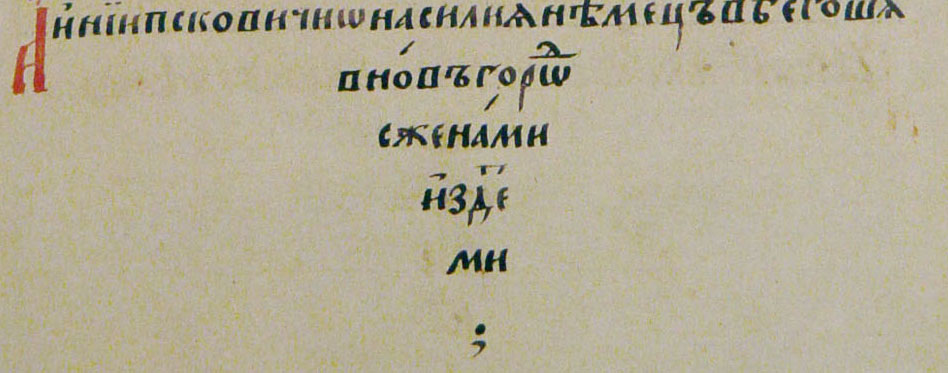 А и҆нїи псковичи ѡ насилиѧ нѣмецъ вбегошѧ
в но́въгорѡⷣ
с жена́ми
и҆ з дⷮе
ми
;